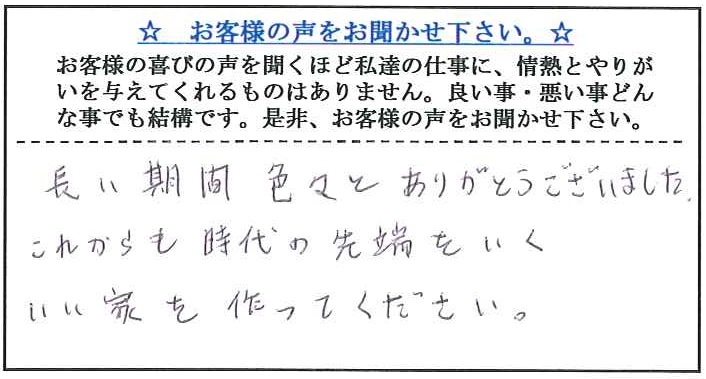 ☆　お客様の声をお聞かせ下さい。☆
お客様の喜びの声を聞くほど私達の仕事に、情熱とやりが
いを与えてくれるものはありません。良い事・悪い事どん
な事でも結構です。是非、お客様の声をお聞かせ下さい。
長い期間色々とありがとうございました。
これからも時代の先端をいく
いい家を作ってください。